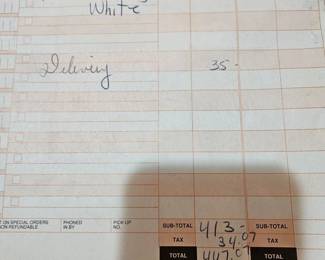 White
Delivery 35-
T ON SPECIAL ORDERS
ON REFUNDABLE
PHONED
IN BY
PICK UP
NO.
SUB-TOTAL 413- SUB-TOTAL
TAX 34.07 TAX
TOTAL 447.07 TOTAL